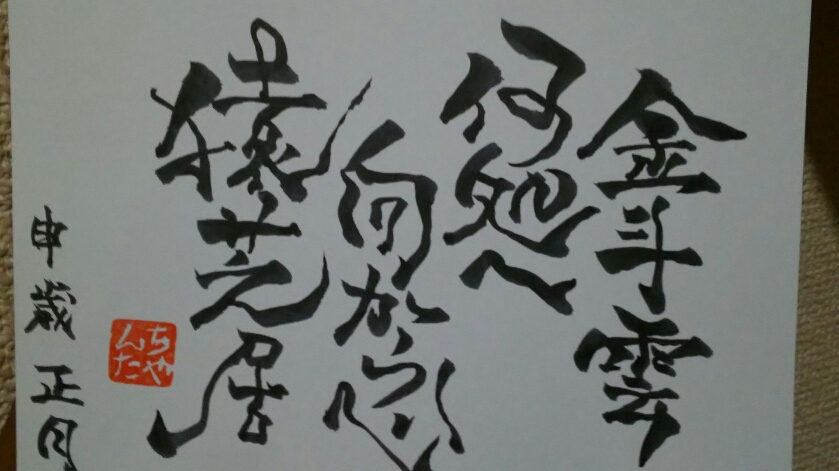 金斗雲
何処へ
向かふ
猿芝居
申歳 正月
ちや
んた